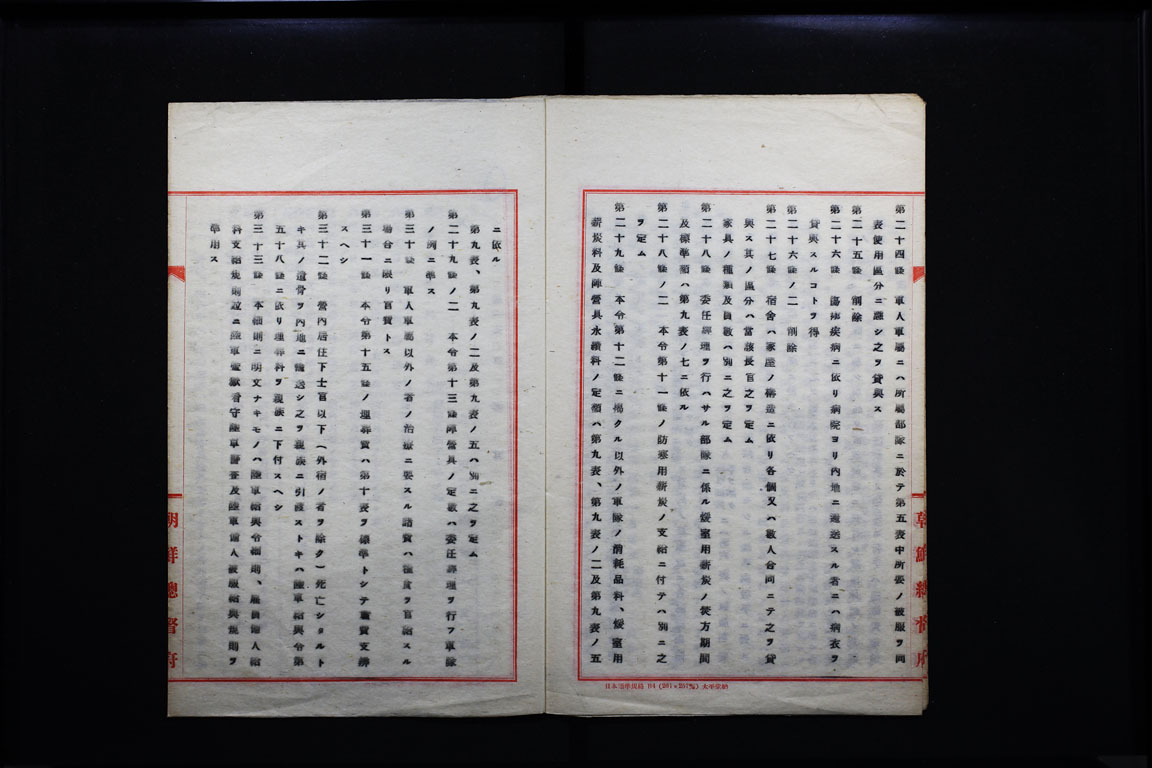 第二十四條　軍人軍屬ニハ所屬部隊ニ於テ第五表中所要ノ被服ヲ同
表使用區分ニ應シ之ヲ貸與ス
第二十五條　削除
第二十六條　傷痍疾病ニ依リ病院ヨリ內地ニ還送スル者ニハ病衣ヲ
貸與スルコトヲ得
第二十六條ノ二　削除
第二十七條　宿舍ハ家屋ノ構造ニ依リ各個又ハ數人合同ニテ之ヲ貸
與ス其ノ區分ハ當該長官之ヲ定ム
家具ノ種類及員數ハ別ニ之ヲ定ム
第二十八條　委任經理ヲ行ハサル部隊ニ係ル煖室用薪炭ノ焚方期間
及標準額ハ第九表ノ七ニ依ル
第二十八條ノ二　本令第十一條ノ防寒用薪炭ノ支給ニ付テハ別ニ之
ヲ定ム
第二十九條　本令第十二條ニ揭クル以外ノ軍隊ノ消耗品料、煖室用
薪炭料及陣營具永續料ノ定額ハ第九表、第九表ノ二及第九表ノ五
ニ依ル
第九表、第九表ノ二及第九表ノ五ハ別ニ之ヲ定ム
第二十九條ノ二　本令第十三條陣營具ノ定數ハ委任經理ヲ行フ軍隊
ノ例ニ準ス
第三十條　軍人軍屬以外ノ者ノ治療ニ要スル諸費ハ糧食ヲ官給スル
場合ニ限リ官費トス
第三十一條　本令第十五條ノ埋葬費ハ第十表ヲ標準トシテ實費支辨
スヘシ
第三十二條　營內居住下士官以下（外宿ノ者ヲ除ク）死亡シタルト
キ其ノ遺骨ヲ內地ニ輸送シ之ヲ親族ニ引渡ストキハ陸軍給與令第
五十八條ニ依リ埋葬料ヲ親族ニ下付スヘシ
第三十三條　本細則ニ明文ナキモノハ陸軍給與令細則、雇員傭人給
料支給規則竝ニ陸軍監獄看守陸軍警査及陸軍傭人被服給與規則ヲ
準用ス
朝鮮總督府
朝鮮總督府
日本標準規格 B4